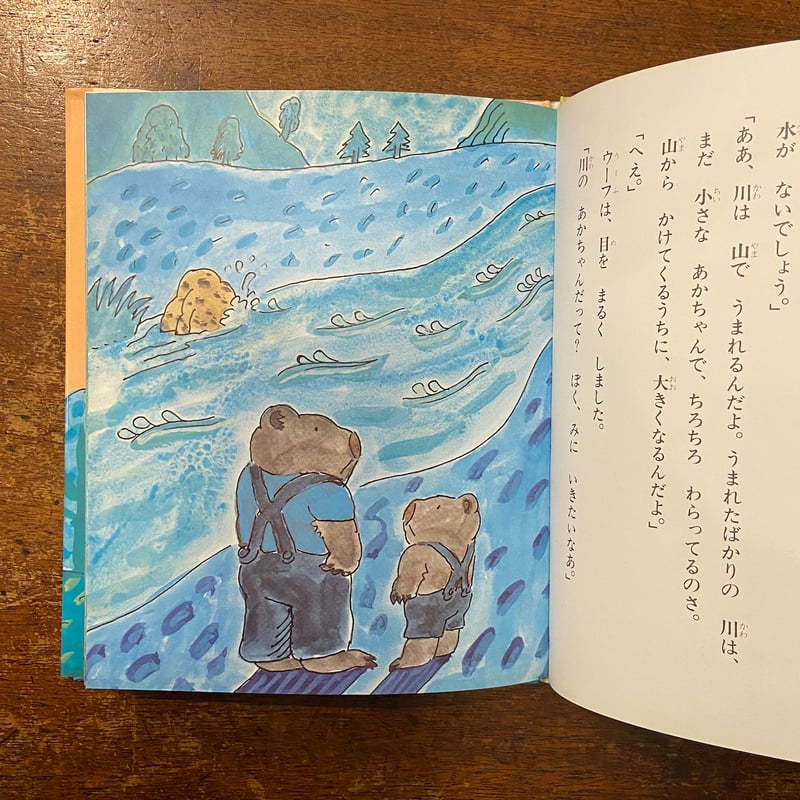 水が ないでしょう。」
「ああ、川は 山で うまれるんだよ。うまれたばかりの 川は、
まだ 小さな あかちゃんで、ちろちろ わらってるのさ。
山から かけてくるうちに、大きくなるんだよ。」
「へえ。」
ウーフは、目を まるく しました。
「川の あかちゃんだって? ぼく、みに いきたいなあ。」